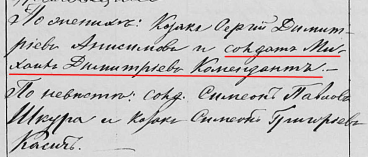 По женихѣ: Козакъ Сергій Димит-
ріевъ Анисимовъ и солдатъ Ми-
хаилъ Димитріевъ Комендантъ. –
По невѣстѣ: солд. Симеонъ Павловъ
Шкура и козакъ Симеонъ Григорьевъ
Касичъ.